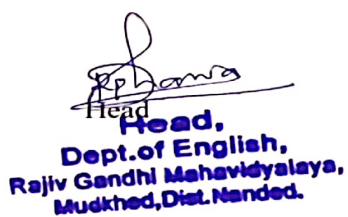 Head
Head,
Dept.of English,
Rajiv Gandhi Mahavidyalaya,
Mudkhed,Dist.Nanded.